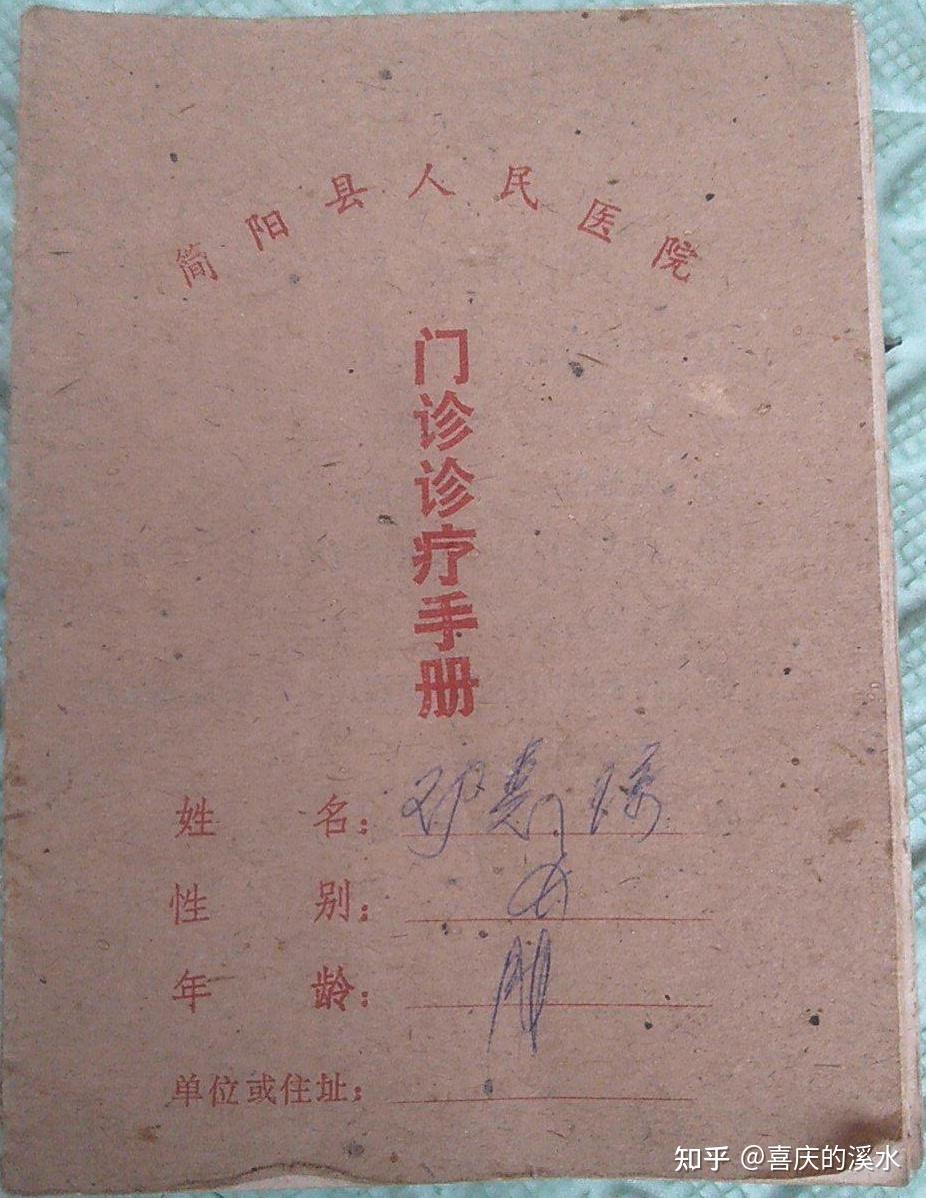 简阳县人民医院
门诊诊疗手册
姓名：邓
性别：女
年龄：
单位或住址：
知乎 @喜庆的溪水